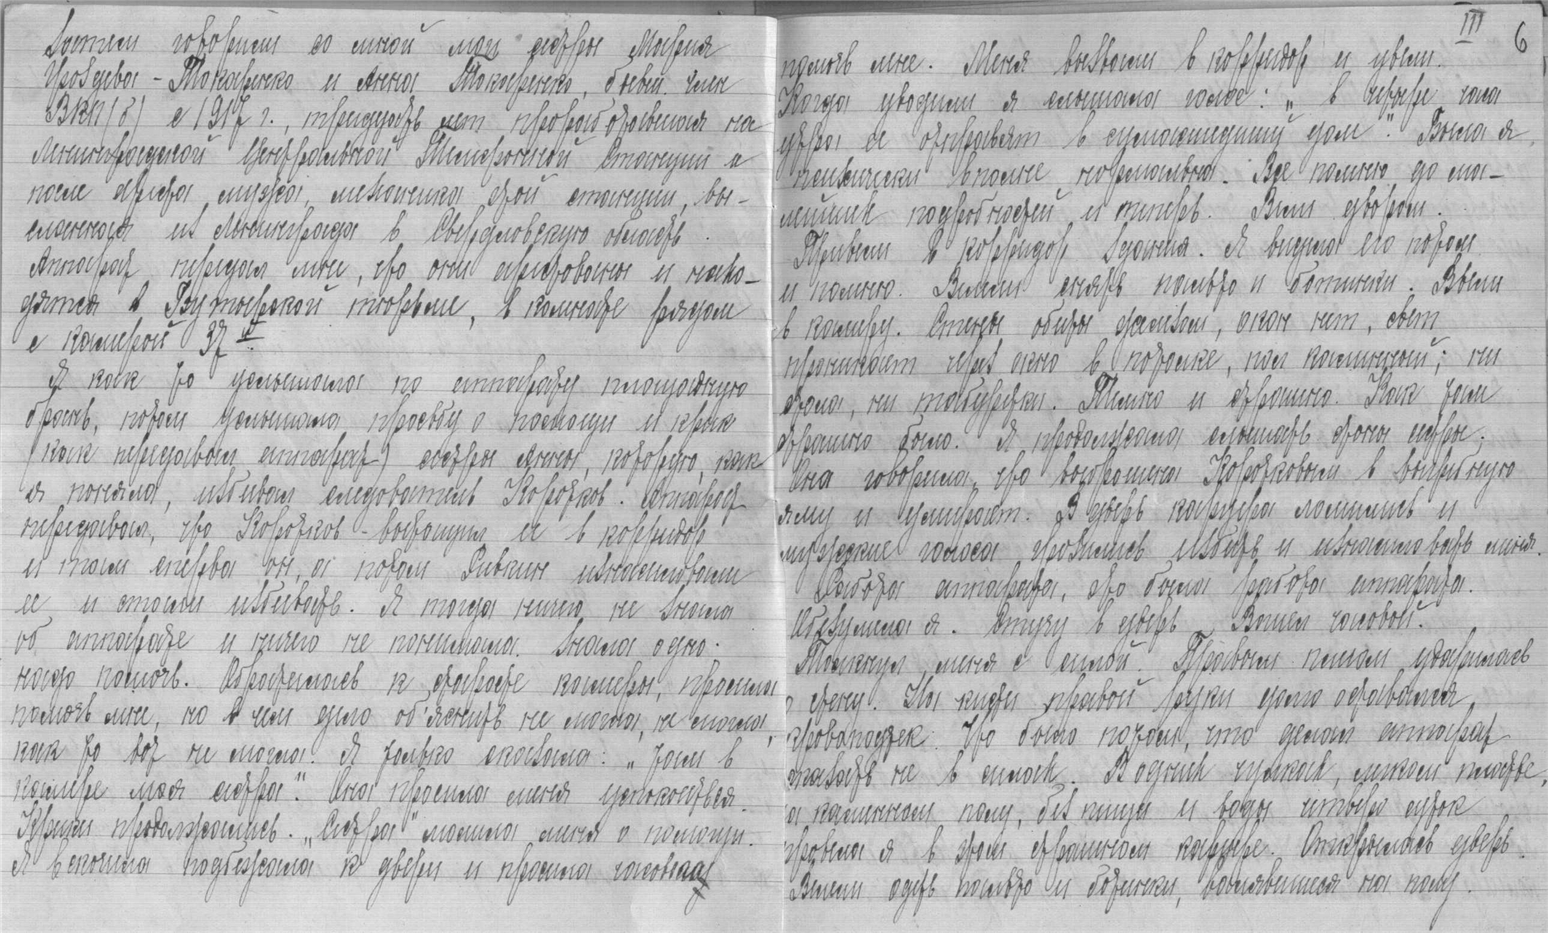 Затем говорили со мной мои сёстры Мария
Гвоздева - Токаренко и Анна Токаренко, бывш. член
ВКП(б) с 1917 г., тридцать лет проработавшая на
Ленинградской Центральной Телефонной Станции и
после ареста мужа, механика этой станции, вы-
сланная из Ленинграда в Свердловскую область.
Аппарат передал мне, что они арестованы и нахо-
дятся в Бутырской тюрьме, в комнате рядом
с камерой 37
Я как то услышала по аппарату площадную
брань, потом услышала просьбу о помощи и крик
(как передавал аппарат) сестры Анны, которую, как
я поняла, избивал следователь Коротков. Аппарат
передавал, что Коротков - вытащил её в корридор
и там сперва он, а потом Ривкин изнасиловали
её и стали избивать. Я тогда ничего не знала
об аппарате и ничего не понимала. Знала одно:
надо помочь. Обратилась к старосте камеры, просила
помочь мне, но в чем дело об'яснить не могла, не могла,
как то вот не могла. Я только сказала: „там в
камере моя сестра". Она просила меня успокоиться.
Крики продолжались. „Сестра" молила меня о помощи.
Я вскочила подбежала к двери и просила часовых
III 6
помочь мне. Меня вызвали в корридор и увели.
Когда уводили я слышала голос: „в четыре часа
утра её отправят в сумасшедший дом". Была я
психически вполне нормальна. Все помню до ма-
лейших подробностей и теперь. Вели двором.
Привели в корридор здания. Я видела его потом
и помню. Велели снять пальто и ботинки. Ввели
в камеру. Стены обиты железом, окон нет, свет
проникает через окно в потолке, пол каменный; ни
стола, ни табуретки. Темно и страшно. Как там
страшно было. Я продолжала слышать стоны сестры.
Она говорила, что выброшена Коротковым в выгребную
яму и умирает. В дверь карцера ломились и
мужские голоса грозились избить и изнасиловать меня.
Работа аппарата, это была работа аппарата.
Обезумела я. Стучу в дверь. Вошел часовой.
Толкнул меня с силой. Правым плечом ударилась
о стену. На кисти правой руки долго оставался
кровоподтек. Что было потом, что делал аппарат
сказать не в силах. В одних чулках, легком платье,
на каменном полу, без пищи и воды четверо суток
провела я в этом страшном карцере. Открылась дверь.
Велели одеть пальто и ботинки, валявшиеся на полу.